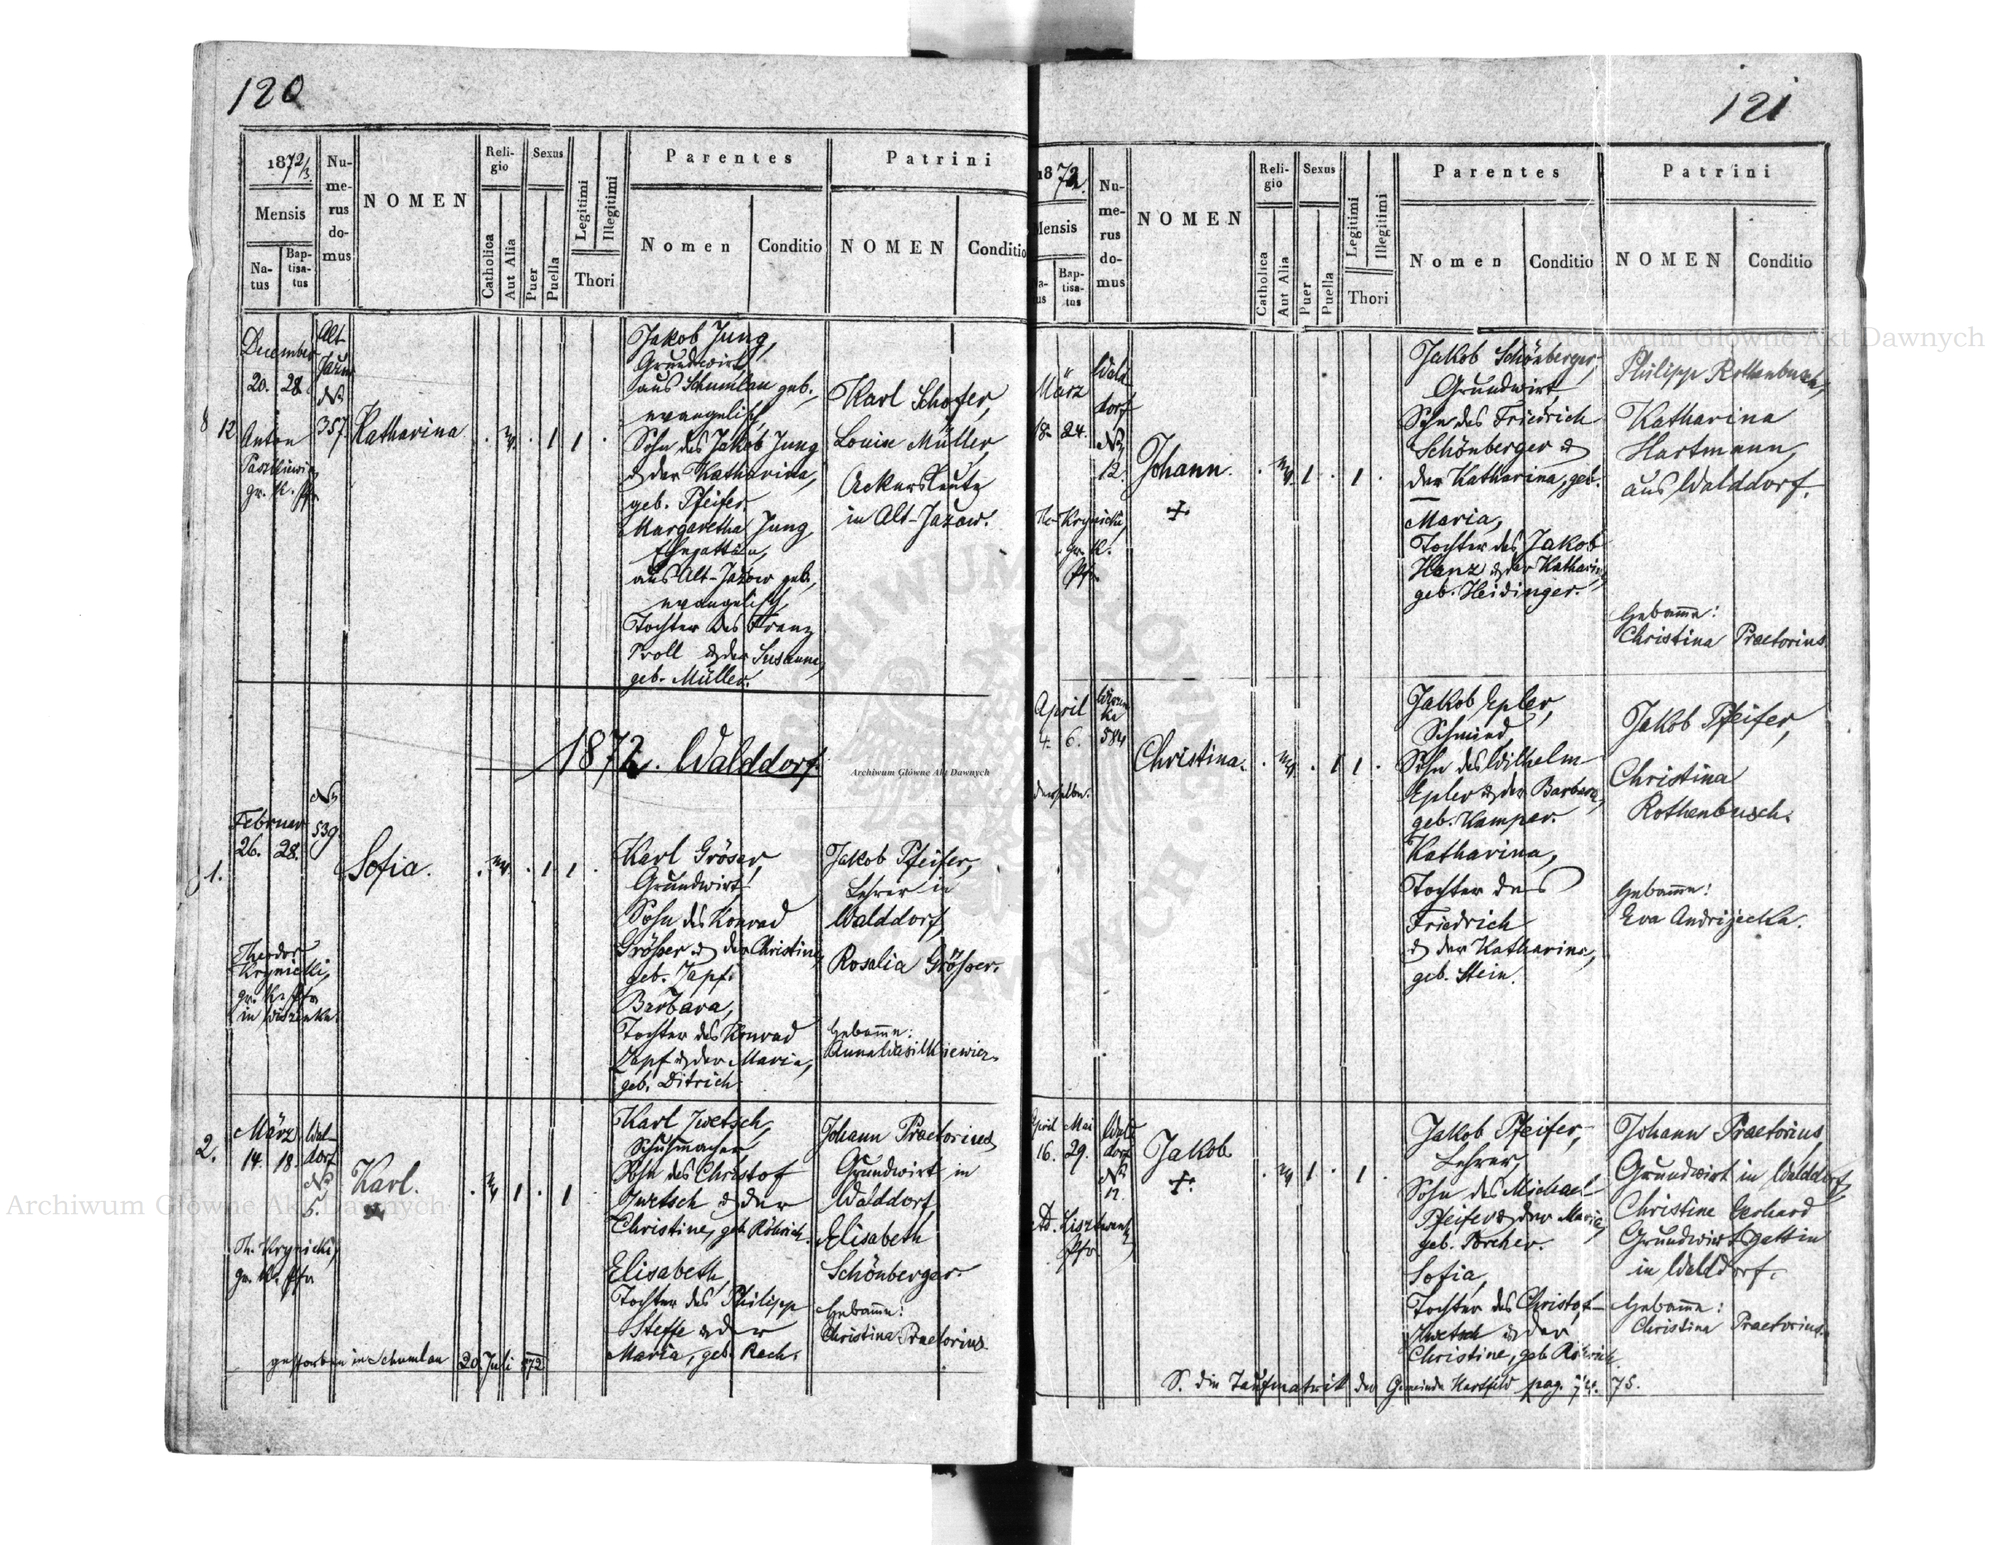 120
1872/3.
Mensis
Na-
tus
Bap-
tisa-
tus
Nu-
me-
rus
do-
mus
NOMEN
Reli-
gio
Catholica
Aut Alia
Sexus
Puer
Puella
Legitimi
Illegitimi
Thori
Parentes
Nomen
Conditio
Patrini
NOMEN
Conditio
December
20. 28.
Alt
№
357.
8 12
Anton
gr. k. Pfr
Katharina
1 1
Jakob Jung,
Grundwirt,
aus Schumlau geb.,
evangelisch,
Sohn des Jakob Jung
& der Katharina,
geb. Pfeifer.
Margaretha Jung,
Ehegattin,
aus Alt-Jazow geb.,
evangelisch,
Tochter des Franz
Proll & der Susanna,
geb. Müller.
Karl Schofer,
Louise Müller,
Ackersleute
in Alt-Jazow.
1872. Walddorf.
Archiwum Główne Akt Dawnych
1.
Februar
26. 28.
№
539.
Theodor
Krynicki,
gr. k. Pfr
Sofia.
1 1
Karl Gröser,
Grundwirt
Sohn des Konrad
Größer & der Christine,
geb. Zapf.
Barbara,
Tochter des Konrad
Zapf & der Maria,
geb. Ditrich.
Jakob Pfeifer,
Lehrer in
Walddorf,
Rosalia Größer.
Hebamme:
Anna Wasilkiewicz.
2.
März
14. 18.
Wal-
dorf
№
5.
Th. Krynicki,
gr. k. Pfr
Karl.
1 1
Karl Zwetsch,
Schuhmacher
Sohn des Christof
Zwetsch & der
Christine, geb. Röhrich.
Elisabeth,
Tochter des Philipp
Steffe & der
Maria, geb. Rech.
Johann Praetorius,
Grundwirt in
Walddorf,
Elisabeth
Schönberger.
Hebamme:
Christina Praetorius.
gestorben in Schumlau 20. Juli 872
121
1872.
Mensis
Bap-
tisa-
tus
Nu-
me-
rus
do-
mus
NOMEN
Reli-
gio
Catholica
Aut Alia
Sexus
Puer
Puella
Legitimi
Illegitimi
Thori
Parentes
Nomen
Conditio
Patrini
NOMEN
Conditio
Archiwum Główne Akt Dawnych
März
18. 24.
Wald
dorf
№
12.
Th. Krynicki,
gr. k.
Pfr
Johann.
+
1 1
Jakob Schönberger,
Grundwirt,
Sohn des Friedrich
Schönberger &
der Katharina, geb.
—
Maria,
Tochter des Jakob
Henz & der Katharina,
geb. Heidinger.
Philipp Rothenbusch,
Katharina
Hartmann,
aus Walddorf.
Hebamme:
Christina Praetorius
April
4. 6.
584
derselbe.
Christina.
1 1
Jakob Epler,
Schmied,
Sohn des Wilhelm
Epler & der Barbara,
geb. Kamper.
Katharina,
Tochter des
Friedrich
& der Katharina,
geb. Stein.
Jakob Pfeifer,
Christina
Rothenbusch.
Hebamme:
Eva Andrijecka.
April Mai
16. 29.
Wald
dorf
№
12.
Pfr
Jakob
+
1 1
Jakob Pfeifer,
Lehrer,
Sohn des Michael
Pfeifer & der Maria,
geb. Porcher.
Sofia,
Tochter des Christof
Zwetsch & der
Christine, geb. Röhrich.
Johann Praetorius,
Grundwirt in Walddorf,
Christine Gerhard
Grundwirtsgattin
in Walddorf.
Hebamme:
Christina Praetorius.
S. die Taufmatrik der Gemeinde Hartfeld pag. 74. 75.
Archiwum Główne Akt Dawnych